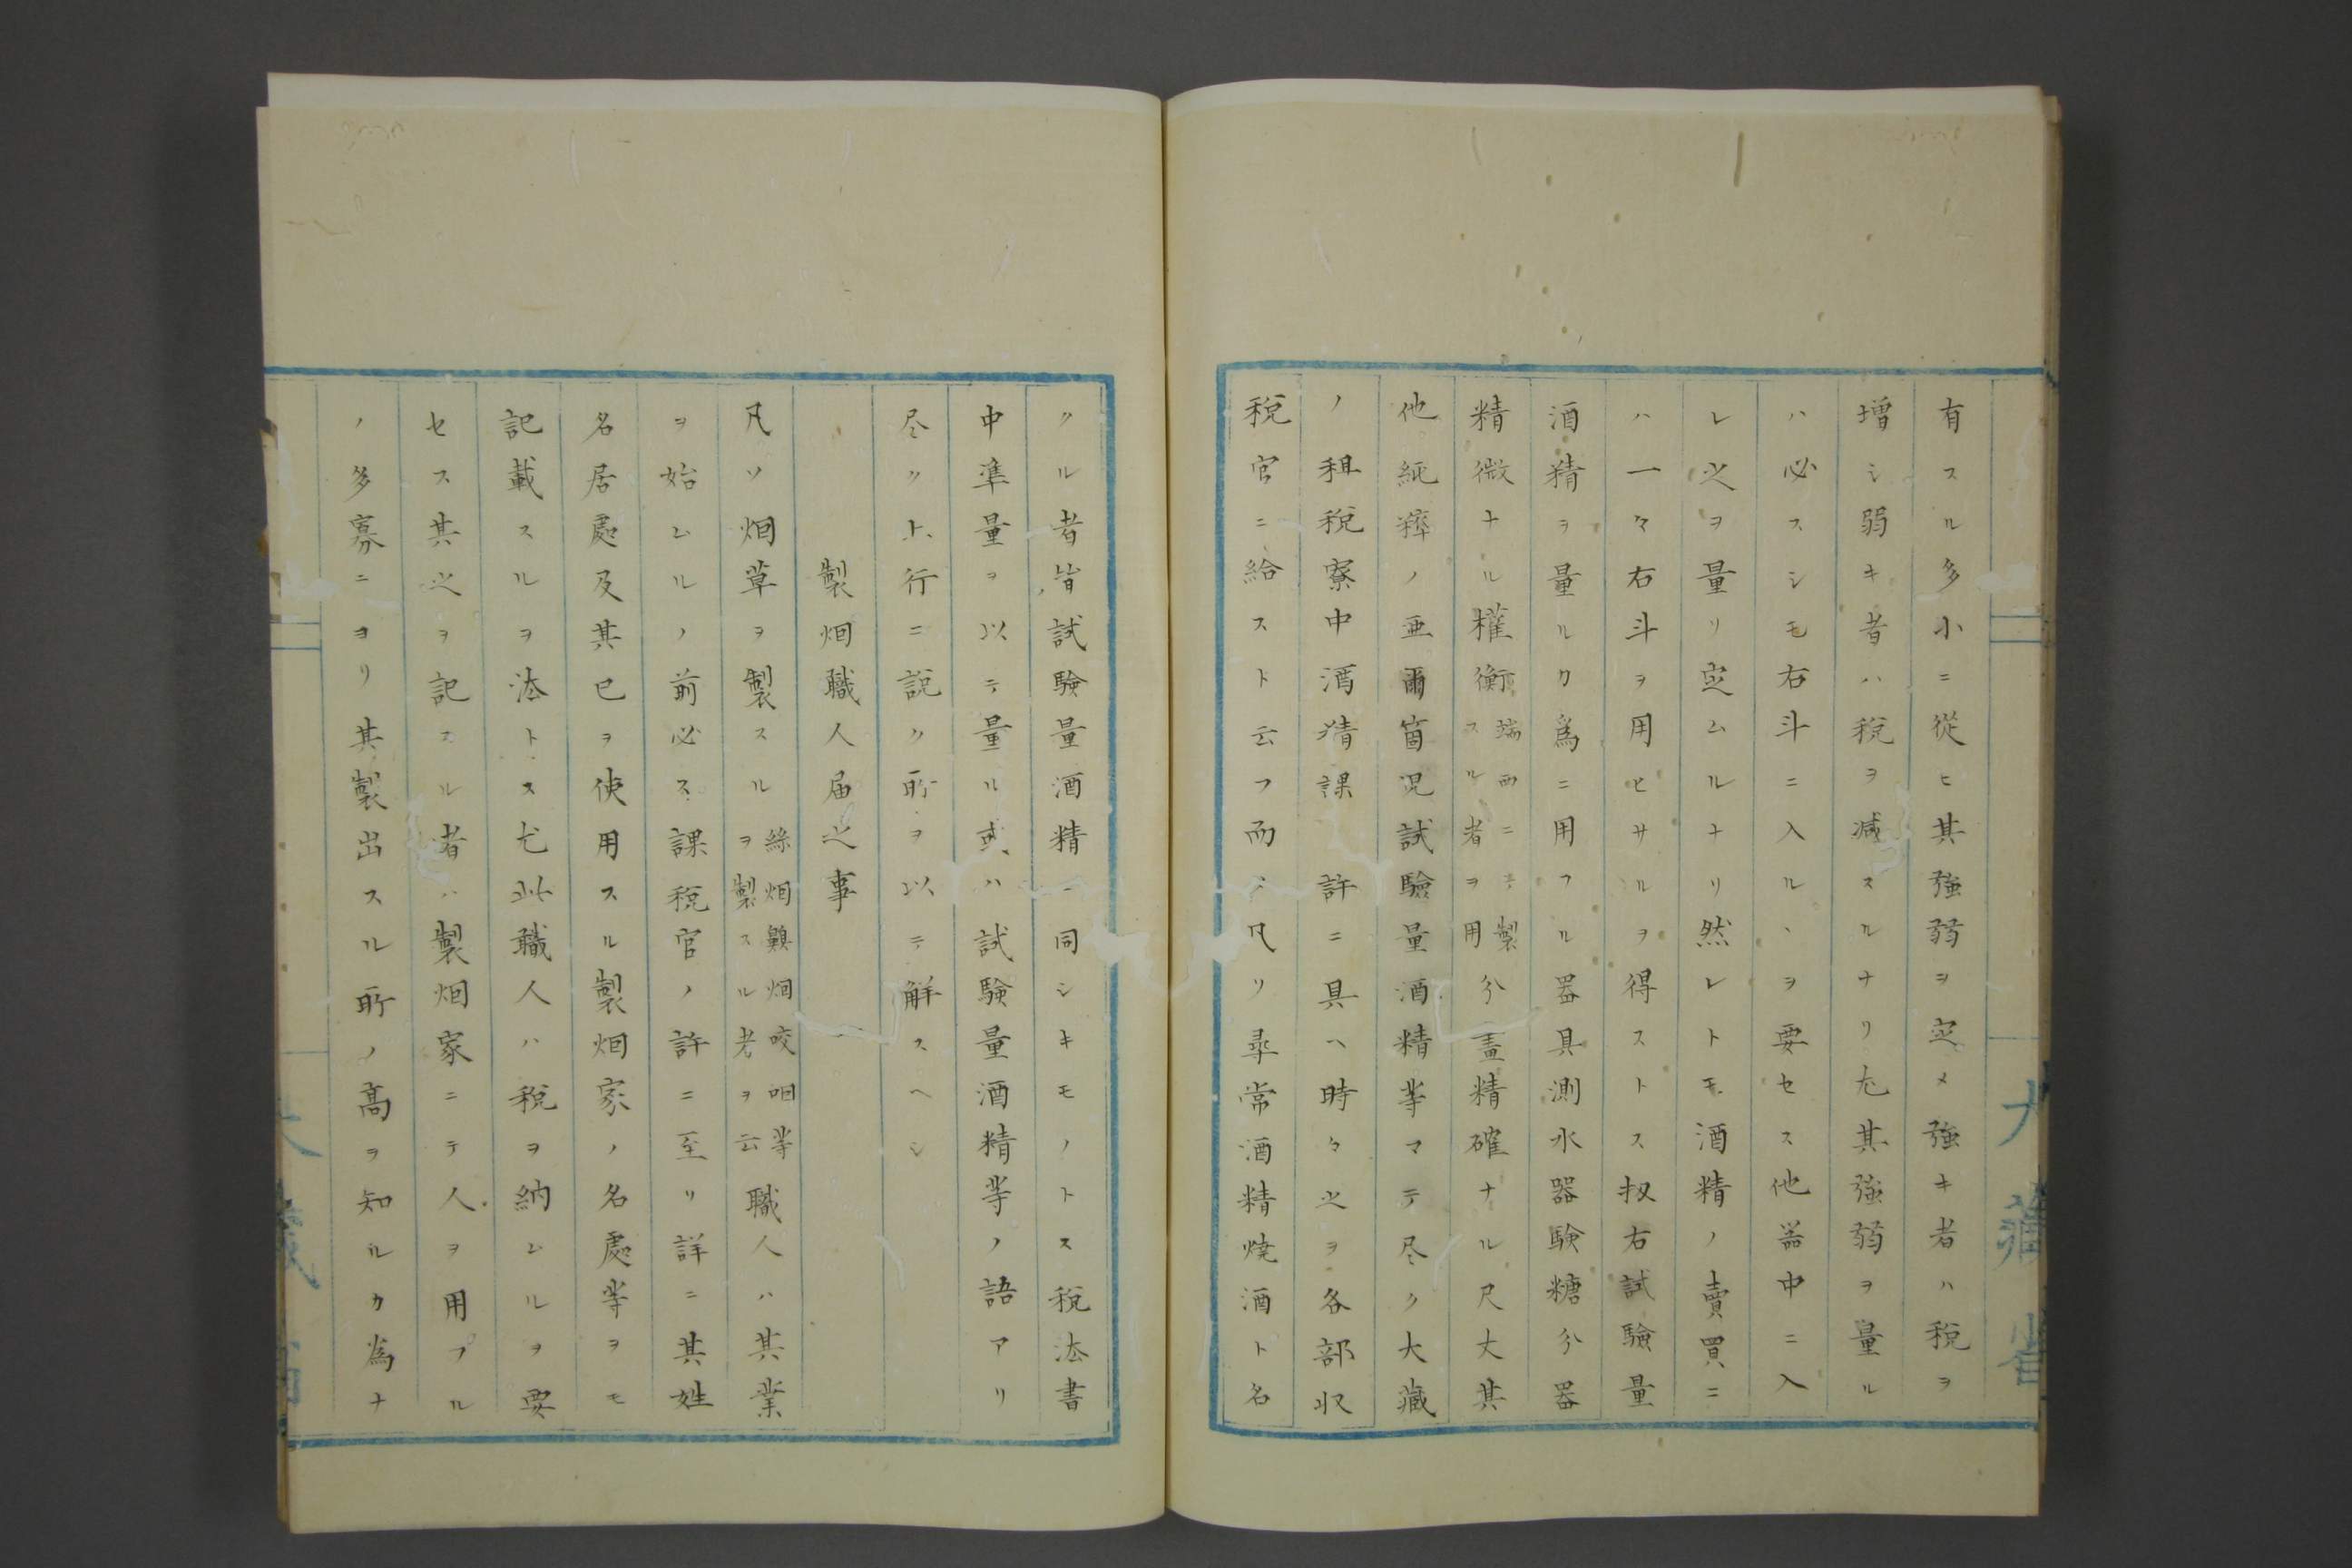 有スル多小ニ從ヒ其強弱ヲ定メ強キ者ハ税ヲ
増シ弱キ者ハ税ヲ減スルナリ尤其強弱ヲ量ル
ハ必スシモ右斗ニ入ルヽヲ要セス他器中ニ入
レ之ヲ量リ定ムルナリ然レトモ酒精ノ賣買ニ
ハ一々右斗ヲ用ヒサルヲ得ストス扨右試驗量
酒精ヲ量ルカ爲ニ用フル器具測水器驗糖分器
精微ナル權衡
端西ニテ製
スル者ヲ用
分畫精確ナル尺丈其
他純粹ノ亜爾箇児試驗量酒精等マテ尽ク大藏
ノ租税寮中酒精課許ニ具ヘ時々之ヲ各部収
税官ニ給スト云フ而テ凡リ尋常酒精燒酒ト名
クル者皆試驗量酒精ニ同シキモノトス税法書
中準量ヲ以テ量ル或ハ試驗量酒精等ノ語アリ
尽ク上行ニ説ク所ヲ以テ解スヘシ
製烟職人届之事
凡ソ烟草ヲ製スル
絲烟嗅烟咬咽等
ヲ製スル者ヲ云
職人ハ其業
ヲ始ムルノ前必ス課税官ノ許ニ至リ詳ニ其姓
名居處及其己ヲ使用スル製烟家ノ名處等ヲモ
記載スルヲ法トス尤此職人ハ税ヲ納ムルヲ要
セス其之ヲ記スル者ハ製烟家ニテ人ヲ用フル
ノ多寡ニヨリ其製出スル所ノ高ヲ知ルカ為ナ
大藏省